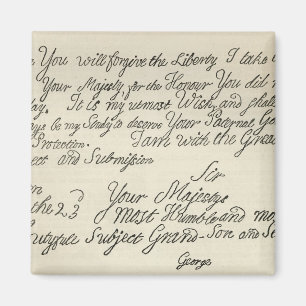 You will forgive the Liberty I take
Your Majesty, for the Honour You did
day. It is my utmost Wish, and shall
be my Study to deserve Your Paternal
Protection. I am with the Grea
ect and Submission
Sir
Your Majestys
the 23d
most Humble and mo
utyfull Subject Grand-Son and Se
George